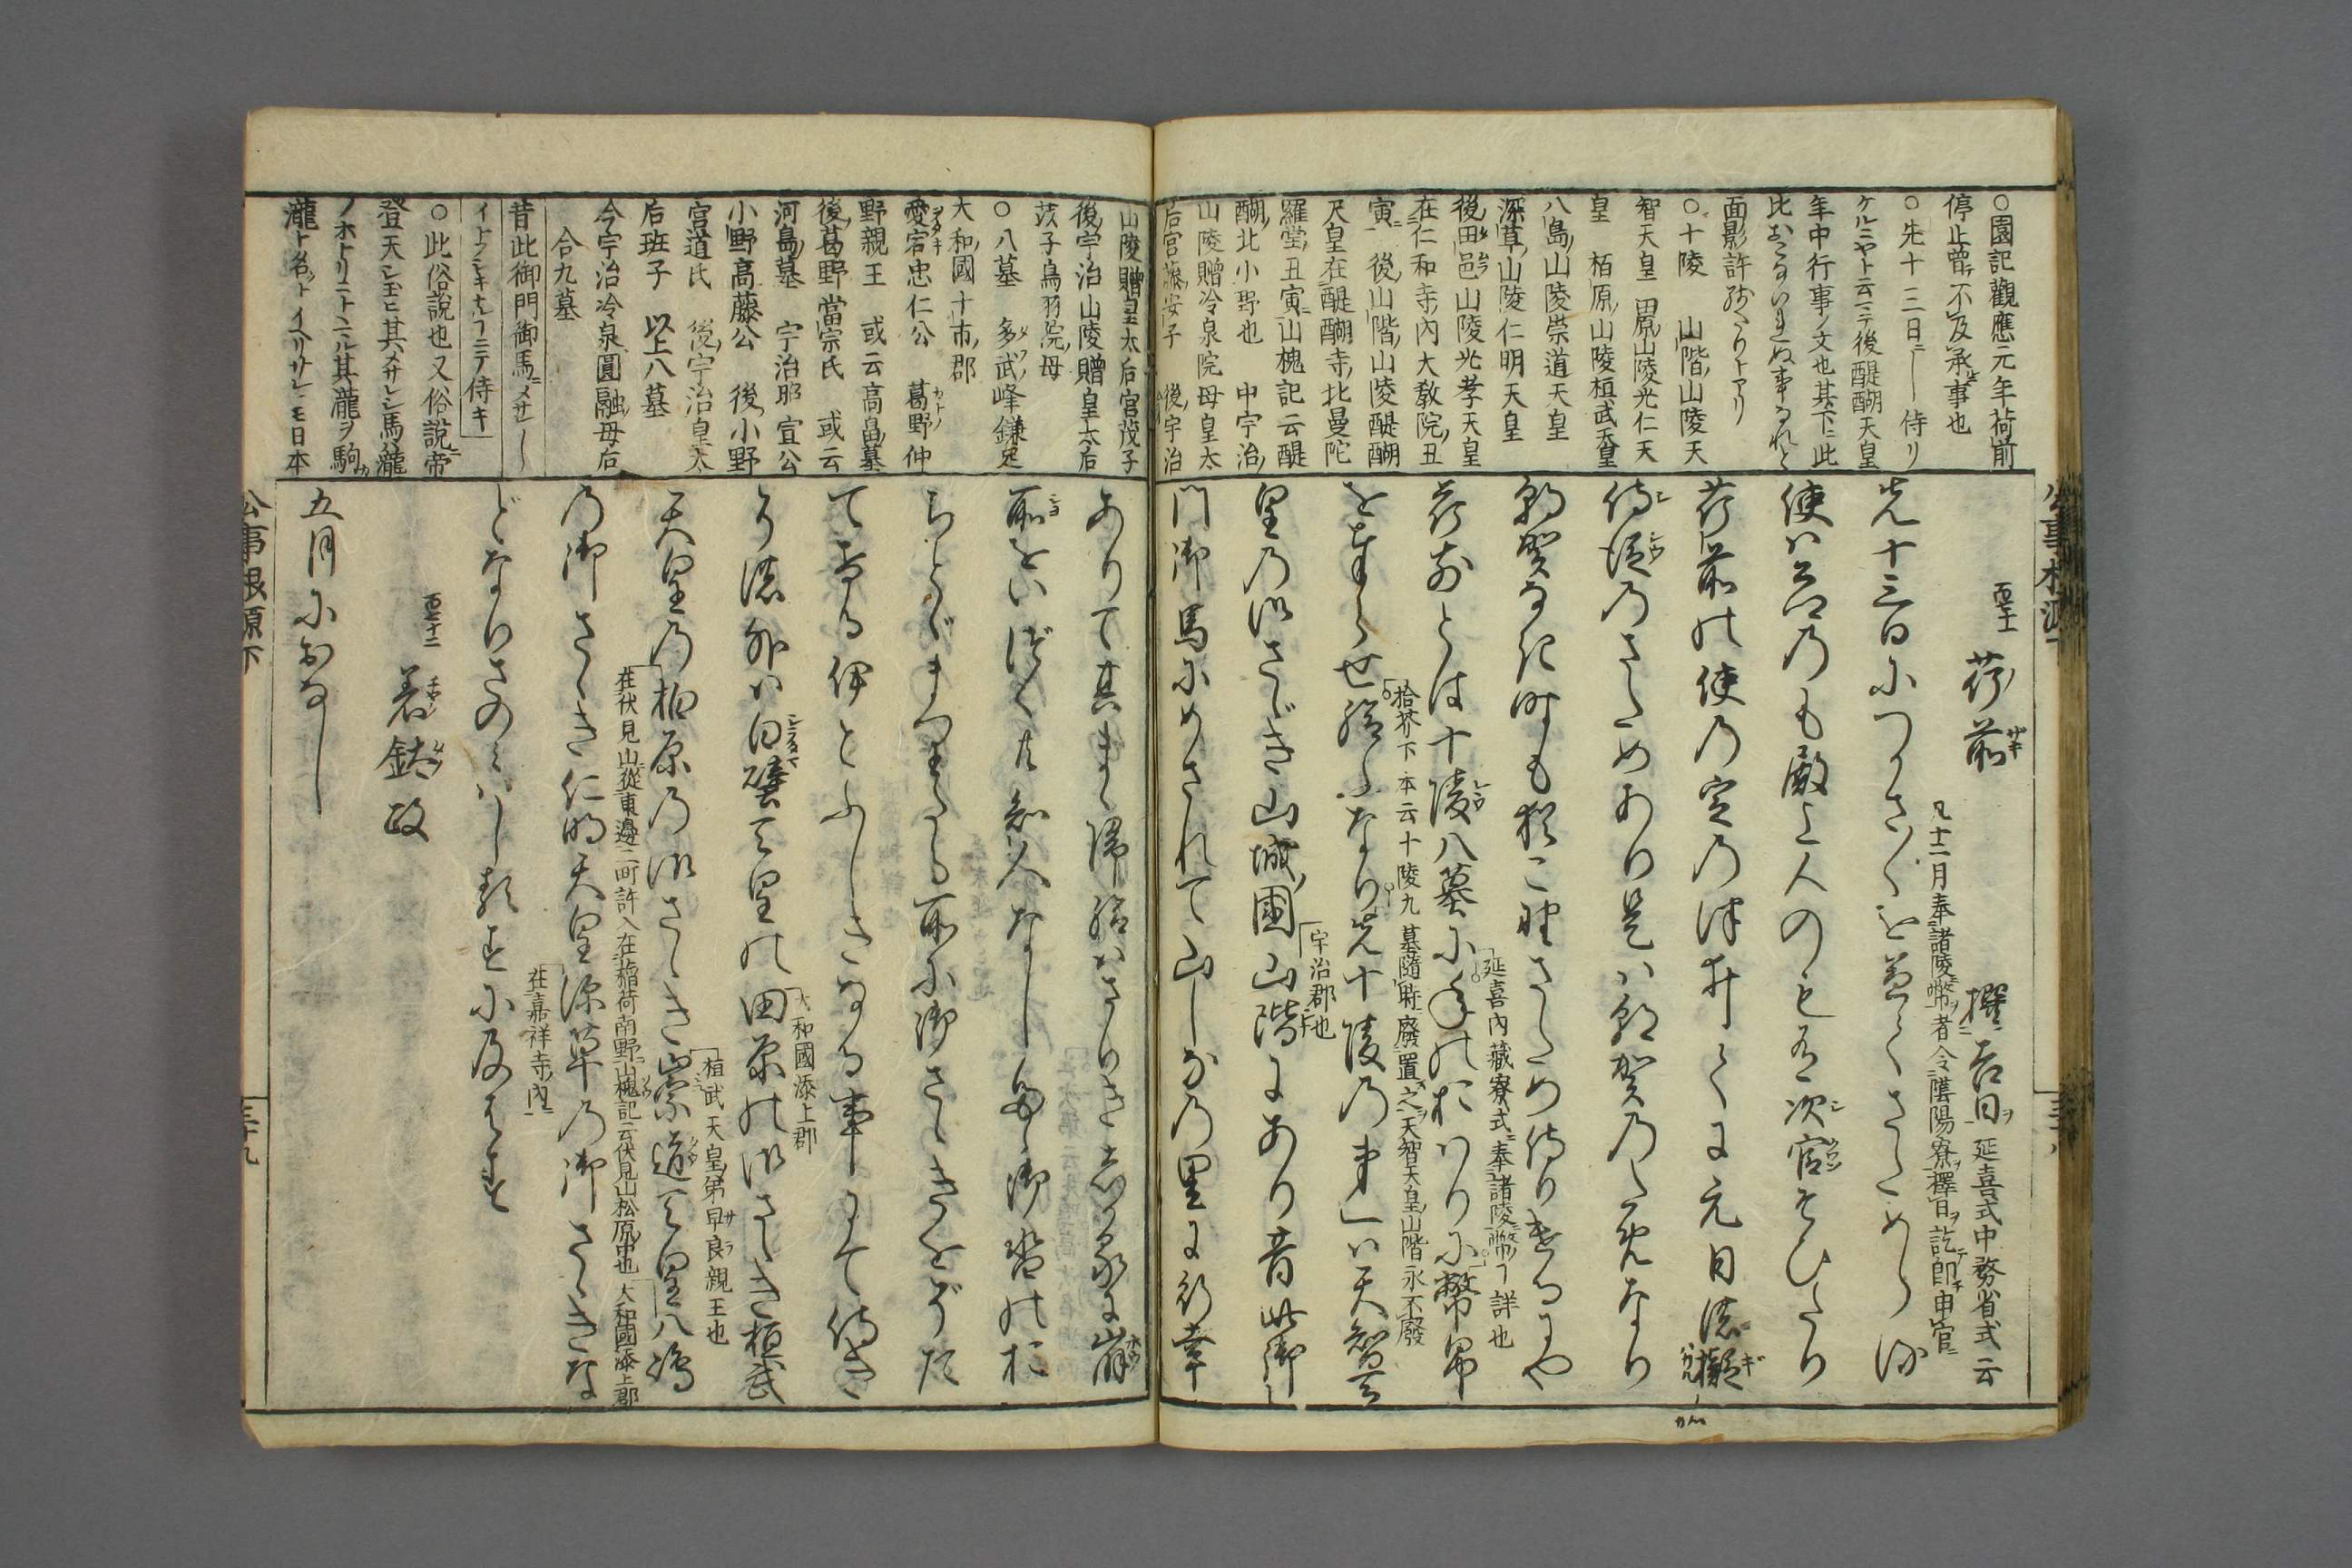 ○園記觀應元年荷前
停止曾テ不及承事也
○先十三日ニ侍リ
ケルニヤト云ニテ後醍醐天皇
年中行事ノ文也其下ニ此
比おこなハれぬ事なれと
面影許残りトアリ
○十陵 山階山陵天
智天皇 田原山陵光仁天
皇 栢原山陵桓武天皇
八島山陵崇道天皇
深草山陵仁明天皇
後田邑山陵光孝天皇
在仁和寺内大教院丑
寅 後山階山陵醍醐
天皇在醍醐寺北曼陀
羅堂丑寅山槐記云醍
醐北小野也 中宇治
山陵贈冷泉院母皇太
后宮藤安子 後宇治
百七十一 荷前 撰吉日ヲ 延喜式中務省式云
凡十二月奉諸陵幣ヲ者令陰陽寮ヲ擇日ヲ訖テ即チ申官ニ
先十三日につかさ〳〵を
使ハ公卿乃も殿上人のもみな次官そひたり
荷前の使乃定乃次に元日擬
侍従乃さためあり是ハ朝賀乃ためなり
朝賀なき時も猶これさため侍りけるにや
荷前とは十陵八墓に年のおハりに幣帛
延喜内藏寮式ニ奉諸陵幣ヿ詳也
をまいらせ給ふなり先十陵乃第一ハ天智天
拾芥下本云十陵九墓隨時廢置之天智天皇山階永不廢
皇乃御さゞき山城國山階にあり昔此御
宇治郡也
門御馬にめされて山しな乃里に行幸
山陵贈皇太后宮茂子
後宇治山陵贈皇太后
茨子鳥羽院母
○八墓 多武峰鎌足
大和國十市郡
愛宕忠仁公 葛野仲
野親王 或云高畠墓
後葛野當宗氏 或云
河島墓 宇治昭宣公
小野高藤公 後小野
宮道氏 後宇治皇太
后班子 以上八墓
今宇治冷泉圓融母后
合九墓
昔此御門御馬ニメサレ
イトフシキナルヿニテ侍キ
○此俗説也又俗説ニ帝
登天シ玉ヒ其メサレシ馬瀧
ノホトリニトヽマル其瀧ヲ駒カ
瀧ト名ットイヘリサレトモ日本
ありて其まゝ帰給ハさりきいつくに崩
所をいづくとも知人なし
ちとゞまりたる所に御さゝきをぞた
てける伊とふしきなる事にて侍き
より後外ハ白璧天皇の田原の御さゝき桓武
大和國添上郡
天皇乃栢原乃御さゝき崇道天皇八嶋
桓武天皇弟早良親王也
在伏見山從東邊二町許入在稲荷南野山槐記云伏見山松原中也 大和國添上郡
乃御さゝき仁明天皇深草乃御さゝきな
在嘉祥寺内ニ
どなりさのミハしるすに及はす
百七十二 着鈦政
五月におなし
公事根源下
三十九